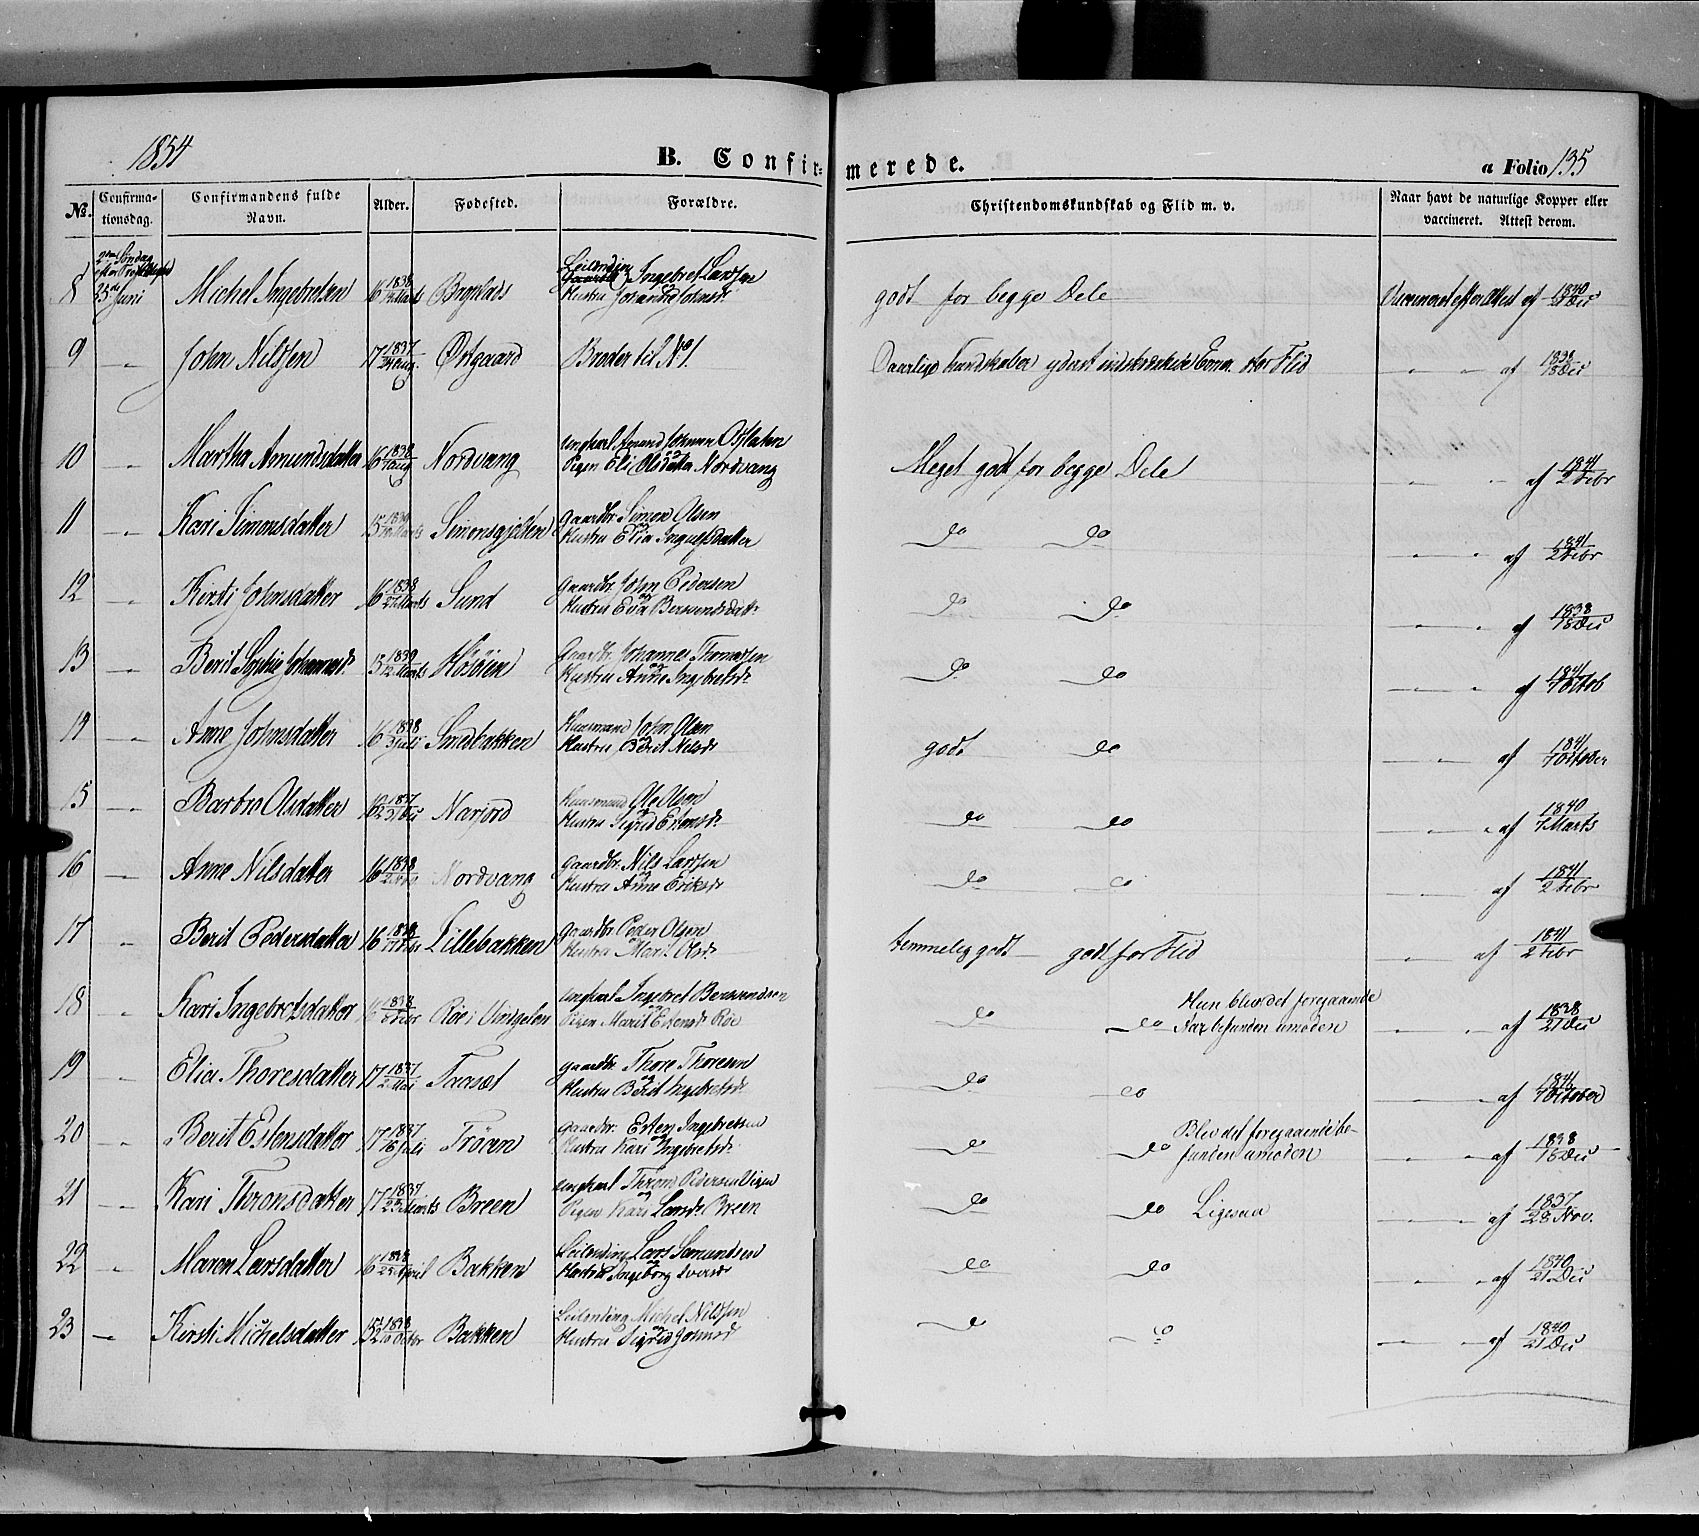 1854
B. Confir-
merede.
a Folio 135
No.
Confirma-
tionsdag.
Confirmandens fulde
Navn.
Alder.
Fødested.
Forældre.
Christendomskundskab og Flid m. v.
Naar havt de naturlige Kopper eller
vaccineret. Attest derom.
8 25de Juni Michel Ingebretsen 16 1838 Marts Bryplads Ingebret Larssen
Hustru godt for begge Dele Attest af 1840 Dec
9 John Nilssen 17 1837 Aug. Østgaard Broder til No 1. Daarlige Kundskaber stor Flid af 1838 18 Dec
10 Martha Amundsdatter 16 1838 Aug Nordvang Ungkarl Amund
Pigen Eli Olsdatter Nordvang Meget godt for begge Dele af 1841 2 Febr
11 Kari Simonsdatter 15 Marts Gaardbr. Simon Olsen
Hustru Elia Ingulfsdatter do do af 1841 2 Febr
12 Kirsti Johnsdatter 16 1838 Marts Sund Gaardbr. John Pedersen
Hustru Eva do do af 1838 18 Dec
13 Berit Sophie Johannesd. 15 1839 12 Marts Gaardbr. Johannes Thomassen
Hustru Anne Ingebretsd. do do af 1841 7 Octob
14 Anne Johnsdatter 16 1838 3 Juli Smedbakken Huusmand John Olsen
Hustru Berit Nilsd. godt do af 1841 7 October
15 Barbro Olsdatter 16 1837 Dec Narjord Huusmand Ole Olsen
Hustru Sigrid Estensd. do do af 1840 7 Marts
16 Anne Nilsdatter 16 1838 Nordvang Gaardbr. Nils Larssen
Hustru Anne Eriksd. do do af 1841 2 Febr
17 Berit Pedersdatter 16 1838 Lillebakken Gaardbr. Peder Olsen
Hustru Marit Olsd. temmelig godt godt for Flid af 1841 2 Febr
18 Kari Ingebretsdatter 1838 Røe i Vingelen Ungkarl Ingebret Bersvendsen
Pigen Marit Estensd. Røe do do Hun blev det foregaaende
Aar befunden umoden af 1838 21 Dec
19 Elia Thoresdatter 17 1837 2 Mai Taaset Gaardbr. Thore Thoresen
Hustru Berit Ingebretsd. do do af October
20 Berit Estensdatter 17 1837 16 Juli Trøen Gaardbr. Esten Ingebretsen
Hustru Kari Ingebretsd. do do Blev det foregaaende be-
funden umoden af 1838 18 Dec
21 Kari Thronsdatter 17 1837 23 Marts Breen Ungkarl Thron Pedersen
Pigen Kari Larsd. Breen do do Ligesaa af 1837 28 Nov.
22 Maren Larsdatter 16 1838 April Bakken Leilending Lars Samundsen
Hustru Ingeborg do do af 1840 21 Dec
23 Kirsti Michelsdatter 15 1838 Octbr Bakken Leilending Michel Nilssen
Hustru Sigrid do do af 1840 21 Dec